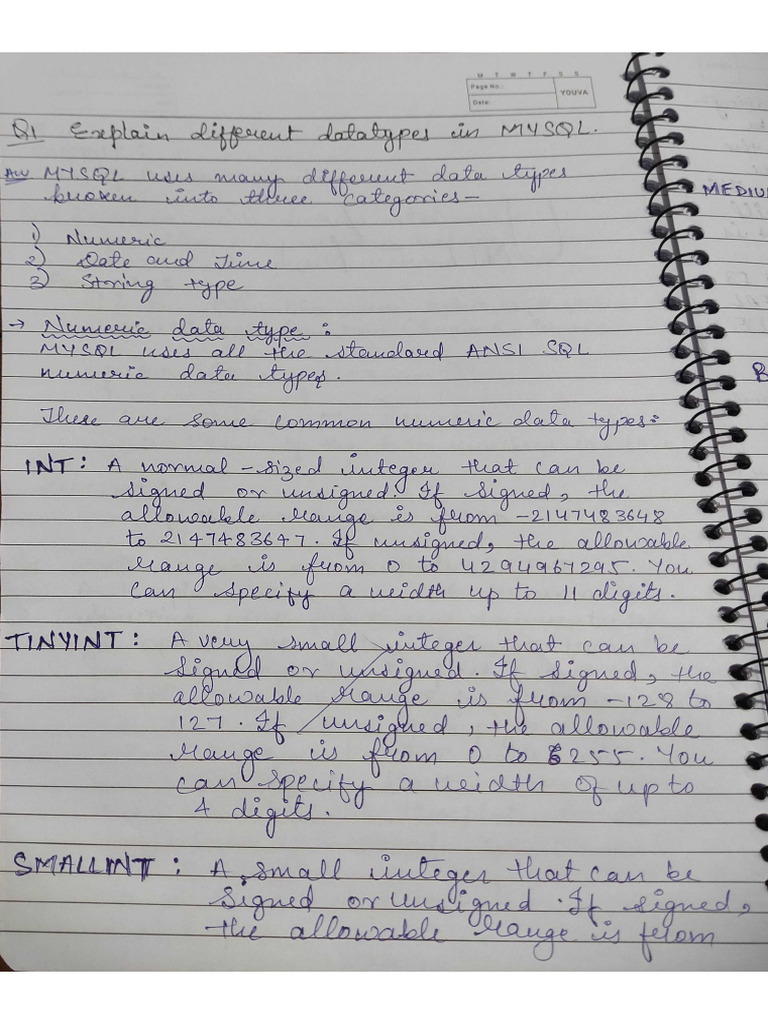 M T W T F S S
Page No.:
YOUVA
Date:
Q1 Explain different datatypes in MYSQL.
Ans MYSQL uses many different data types
broken into three categories-
1) Numeric
2) Date and Time
3) String type
→ Numeric data type :
MYSQL uses all the standard ANSI SQL
numeric data types.
These are some common numeric data types:
INT : A normal-sized integer that can be
signed or unsigned. If signed, the
allowable range is from -2147483648
to 2147483647. If unsigned, the allowable
range is from 0 to 4294967295. You
can specify a width up to 11 digits.
TINYINT : A very small integer that can be
signed or unsigned. If signed, the
allowable range is from -128 to
127. If unsigned, the allowable
range is from 0 to 255. You
can specify a width of up to
4 digits.
SMALLINT : A small integer that can be
signed or unsigned. If signed,
the allowable range is from
MEDIU
B